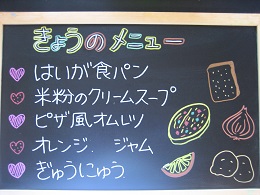 きょうのメニュー
はいが食パン
米粉のクリームスープ
ピザ風オムレツ
オレンジ.ジャム
ぎゅうにゅう